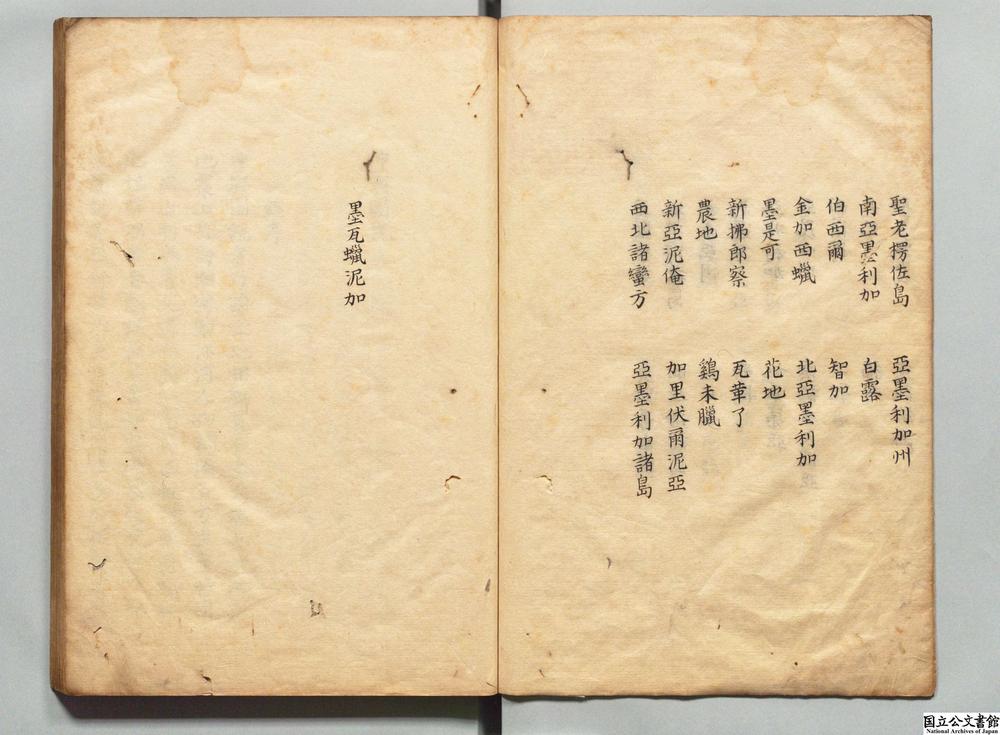 聖老楞佐島 亞墨利加州
南亞墨利加 白露
伯西爾 智加
金加西蠟 北亞墨利加
墨是可 花地
新拂郎察 瓦革了
農地 鷄未臘
新亞泥俺 加里伏爾泥亞
西北諸蠻方 亞墨利加諸島
墨瓦蠟泥加
国立公文書館
National Archives of Japan